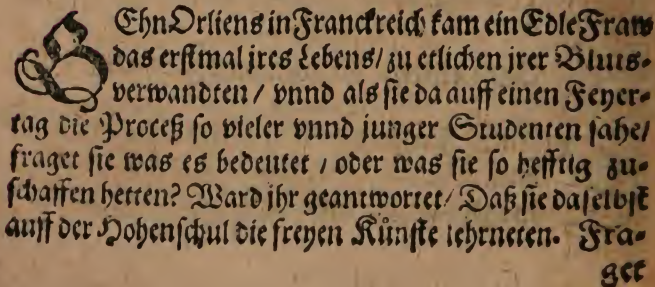 GEhn Orliens in Franckreich kam ein Edle Fraw
das erstmal jres Lebens/ zu etlichen jrer Bluts-
verwandten / vnnd als sie da auff einen Feyer-
tag die Proceß so vieler vnnd junger Studenten sahe/
fraget sie was es bedeutet / oder was sie so hefftig zu-
schaffen hetten? Ward jhr geantwortet/ Daß sie daselbst
auff der Hohenschul die freyen Künste lehrneten. Fra-
get